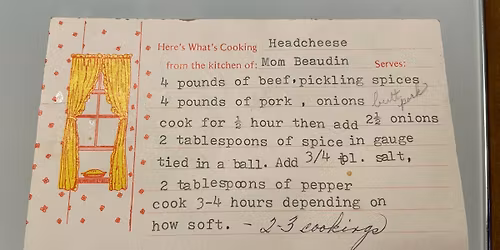 Here's What's Cooking Headcheese
from the kitchen of: Mom Beaudin Serves:
4 pounds of beef, pickling spices
4 pounds of pork , onions butt pork
cook for ½ hour then add 2½ onions
2 tablespoons of spice in gauge
tied in a ball. Add 3/4 tbl. salt,
2 tablespoons of pepper
cook 3-4 hours depending on
how soft. - 2-3 cookings